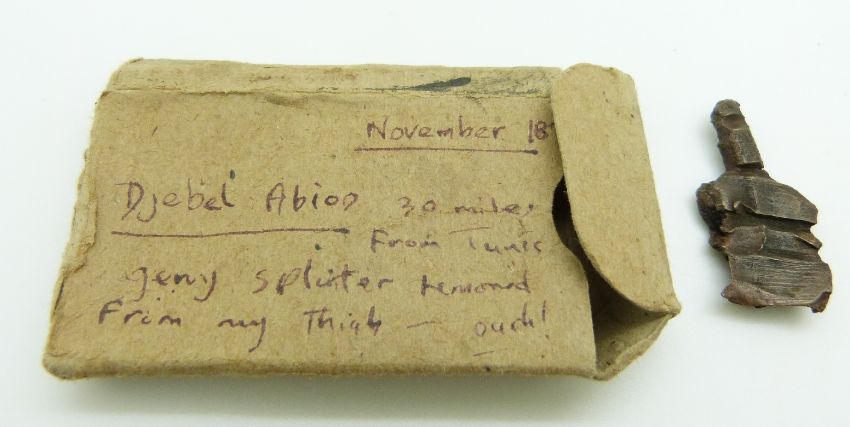 November 18
Djebel Abiod 30 miles
From Tunis
geny splitter removed
From my Thigh — ouch!